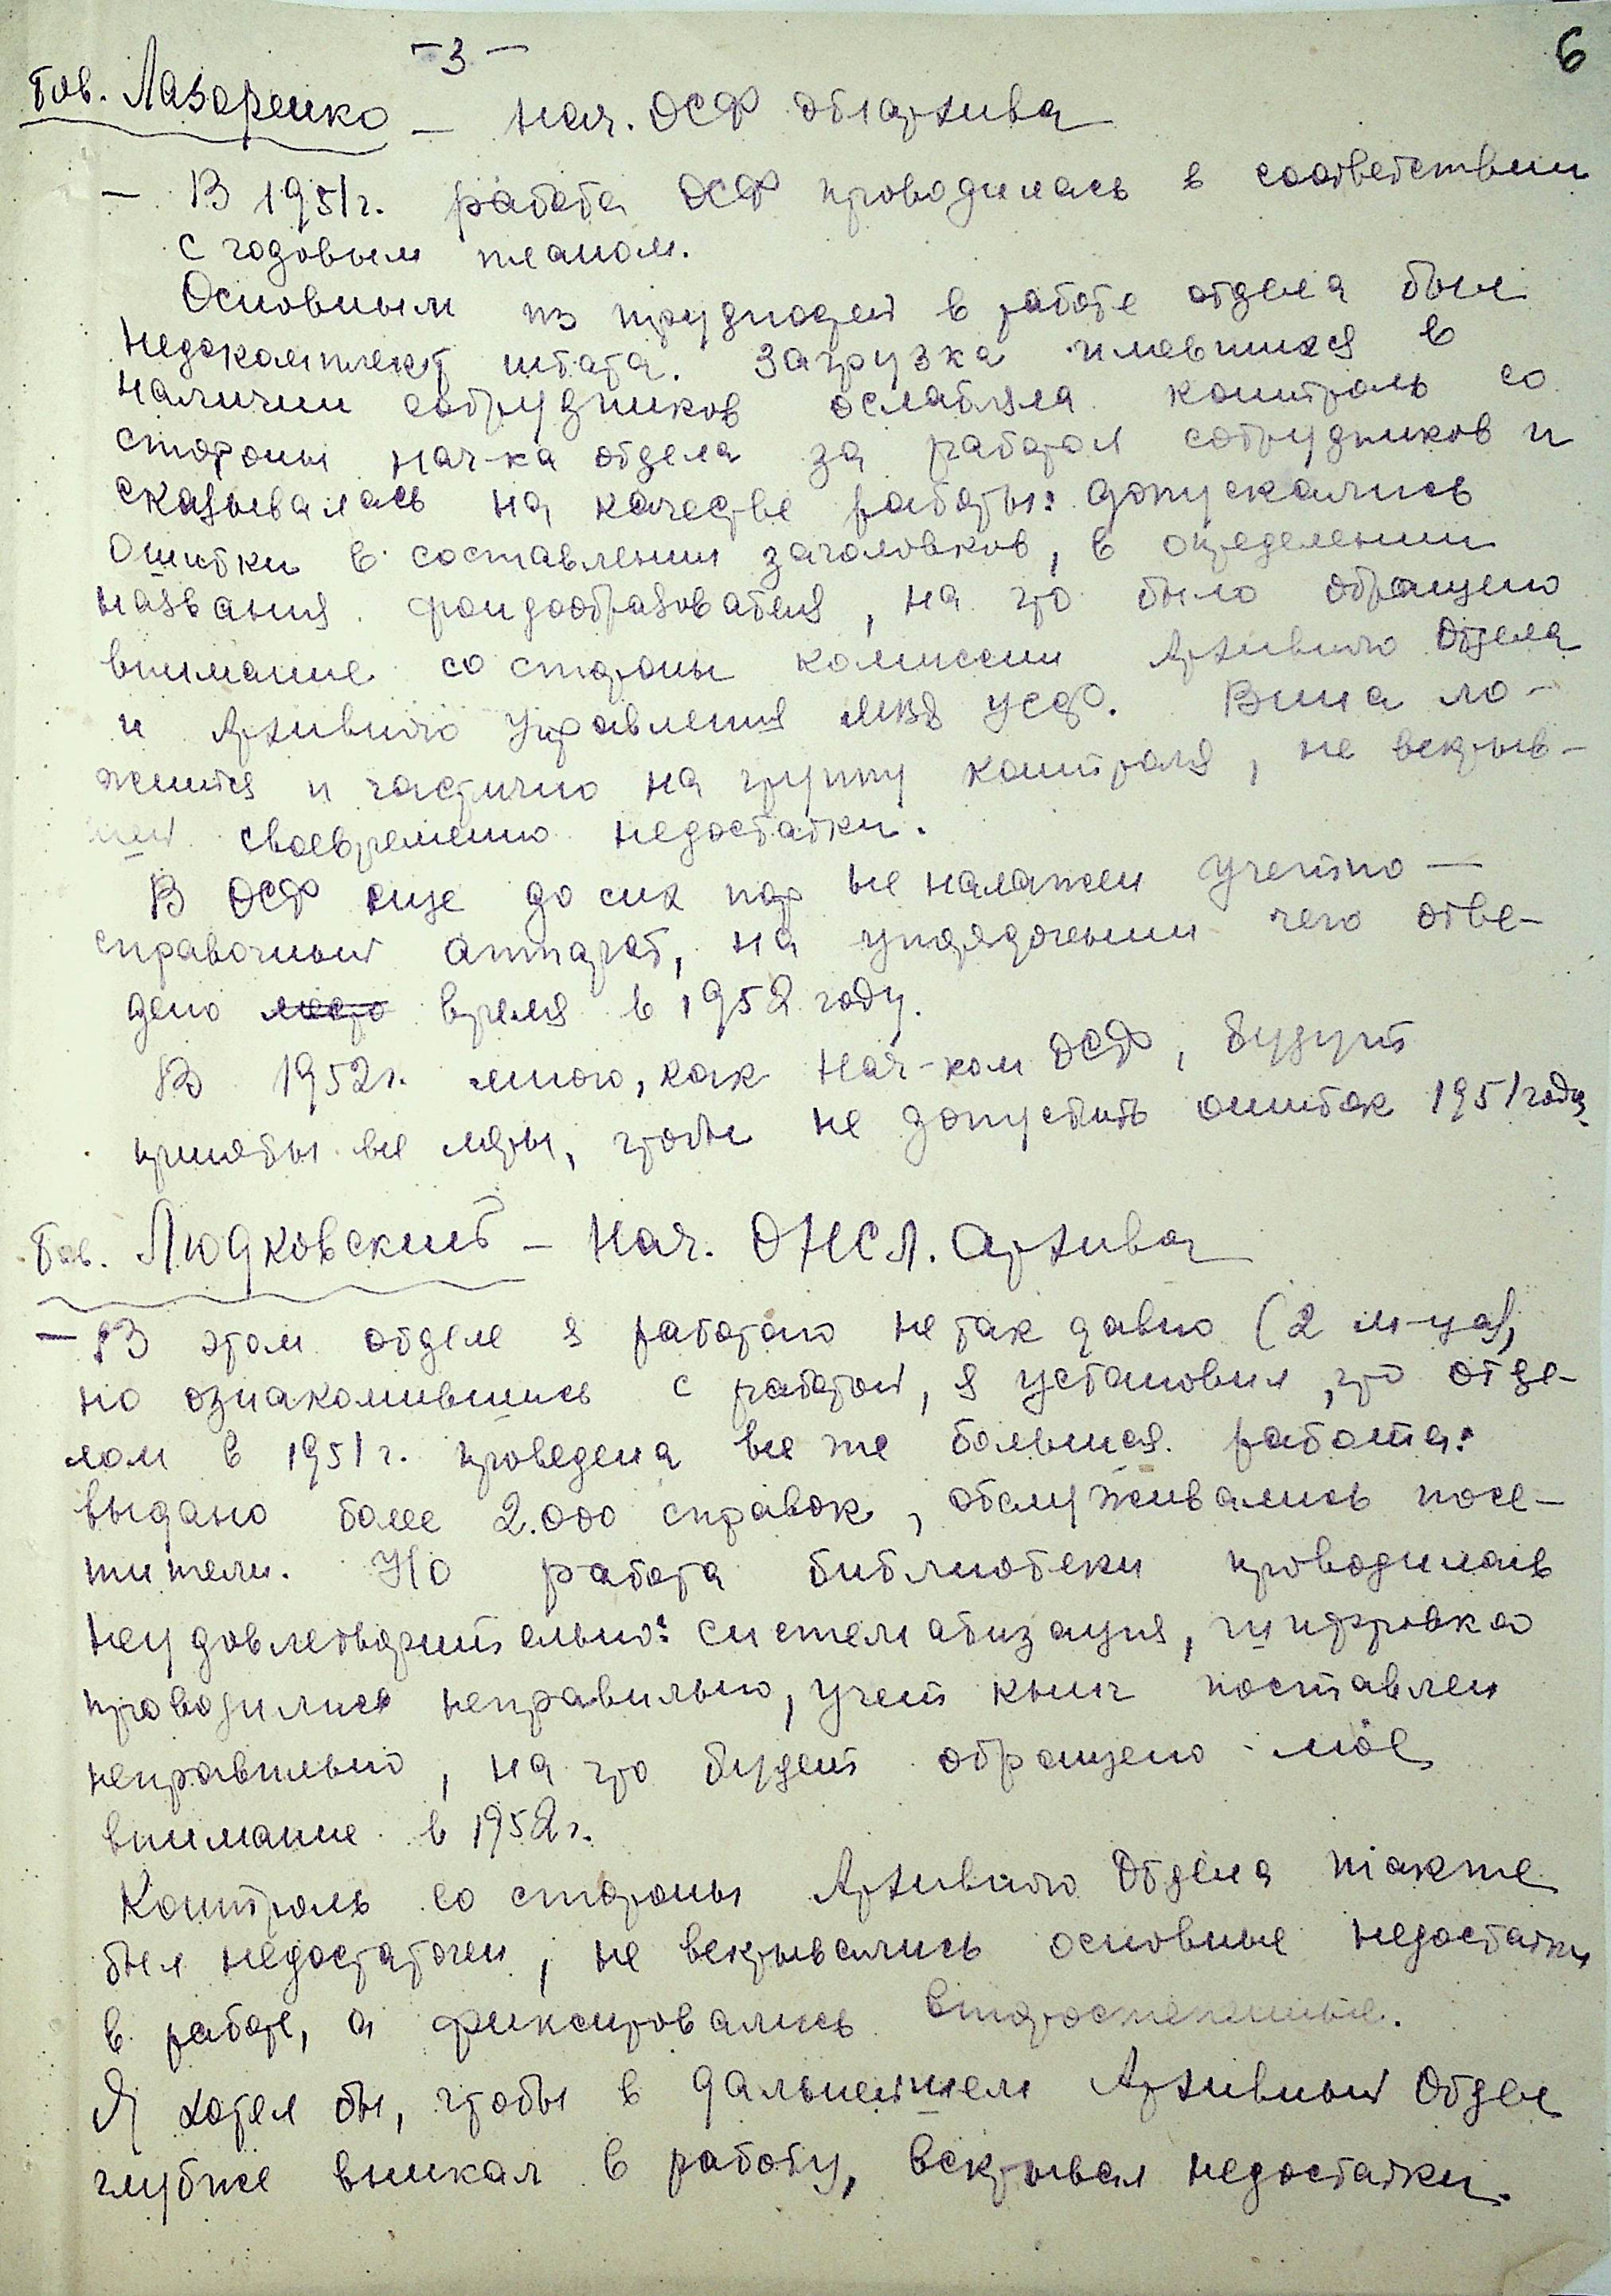 - 3 -
6
Тов. Лазаренко — нач. ОСФ облархива
— В 1951г. работа ОСФ проводилась в соответствии
с годовым планом.
Основным из трудностей в работе отдела был
недокомплект штата. Загрузка имевшихся в
наличии сотрудников ослабляла контроль со
стороны нач-ка отдела за работой сотрудников и
сказывалась на качестве работы: допускались
ошибки в составлении заголовков, в определении
названия фондообразователя, на что было обращено
внимание со стороны комиссии Архивного Отдела
и Архивного Управления МВД УССР. Вина ло-
жится и частично на группу контроля, не вскрыв-
шей своевременно недостатки.
В ОСФ еще до сих пор не налажен учетно-
справочный аппарат, на упорядочении чего отве-
дено место время в 1952 году.
В 1952г. мною, как нач-ком ОСФ, будут
приняты все меры, чтобы не допустить ошибок 1951 года.
Тов. Людковский — Нач. ОНСЛ. архива
— В этом отделе я работаю не так давно (2 м-ца),
но ознакомившись с работой, я установил, что отде-
лом в 1951г. проведена все же большая работа:
выдано более 2.000 справок, обслуживались посе-
тители. Но работа библиотеки проводилась
неудовлетворительно: систематизация, шифровка
проводились неправильно, учет книг поставлен
неправильно, на что будет обращено моё
внимание в 1952г.
Контроль со стороны Архивного Отдела также
был недостаточен, не вскрывались основные недостатки
в работе, а фиксировались второстепенные.
Я хотел бы, чтобы в дальнейшем Архивный Отдел
глубже вникал в работу, вскрывал недостатки.